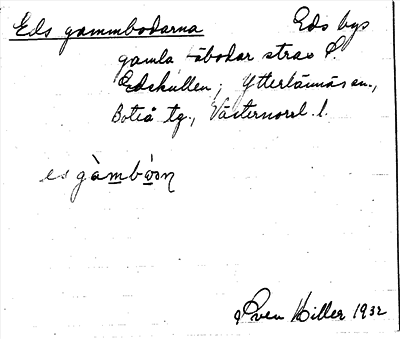 Eds gammbodarna Eds bys
gamla fäbodar strax Ö.
Edskullen, Ytterlännäs sn.,
Boteå tg., Västernorrl. l.
es gàmbòǝn
Sven Hiller 1932